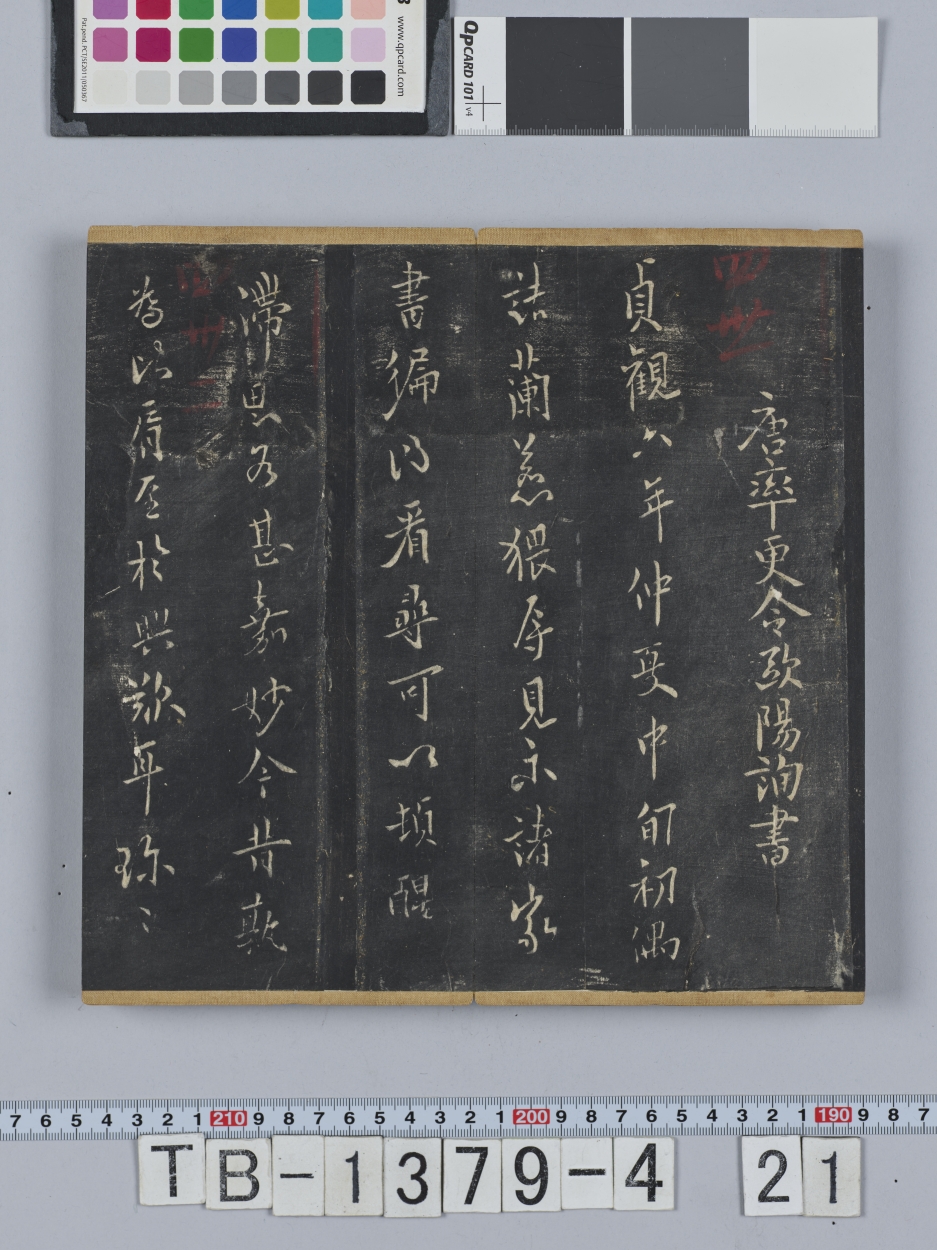 唐率更令歐陽詢書
貞觀六年仲夏中旬初偶
詰蘭若慈猥辱見示諸家
書徧得看尋可以頓醒
滯思若甚嘉妙今昔敦
為此脣至於興歎耳珎〻
四世
四卅一
www.qpcard.com
Pat.pend. PCT/SE2011/050367
QPCARD 101 v4
7 6 5 4 3 2 1 210 9 8 7 6 5 4 3 2 1 200 9 8 7 6 5 4 3 2 1 190 9 8 7
TB-1379-4 21